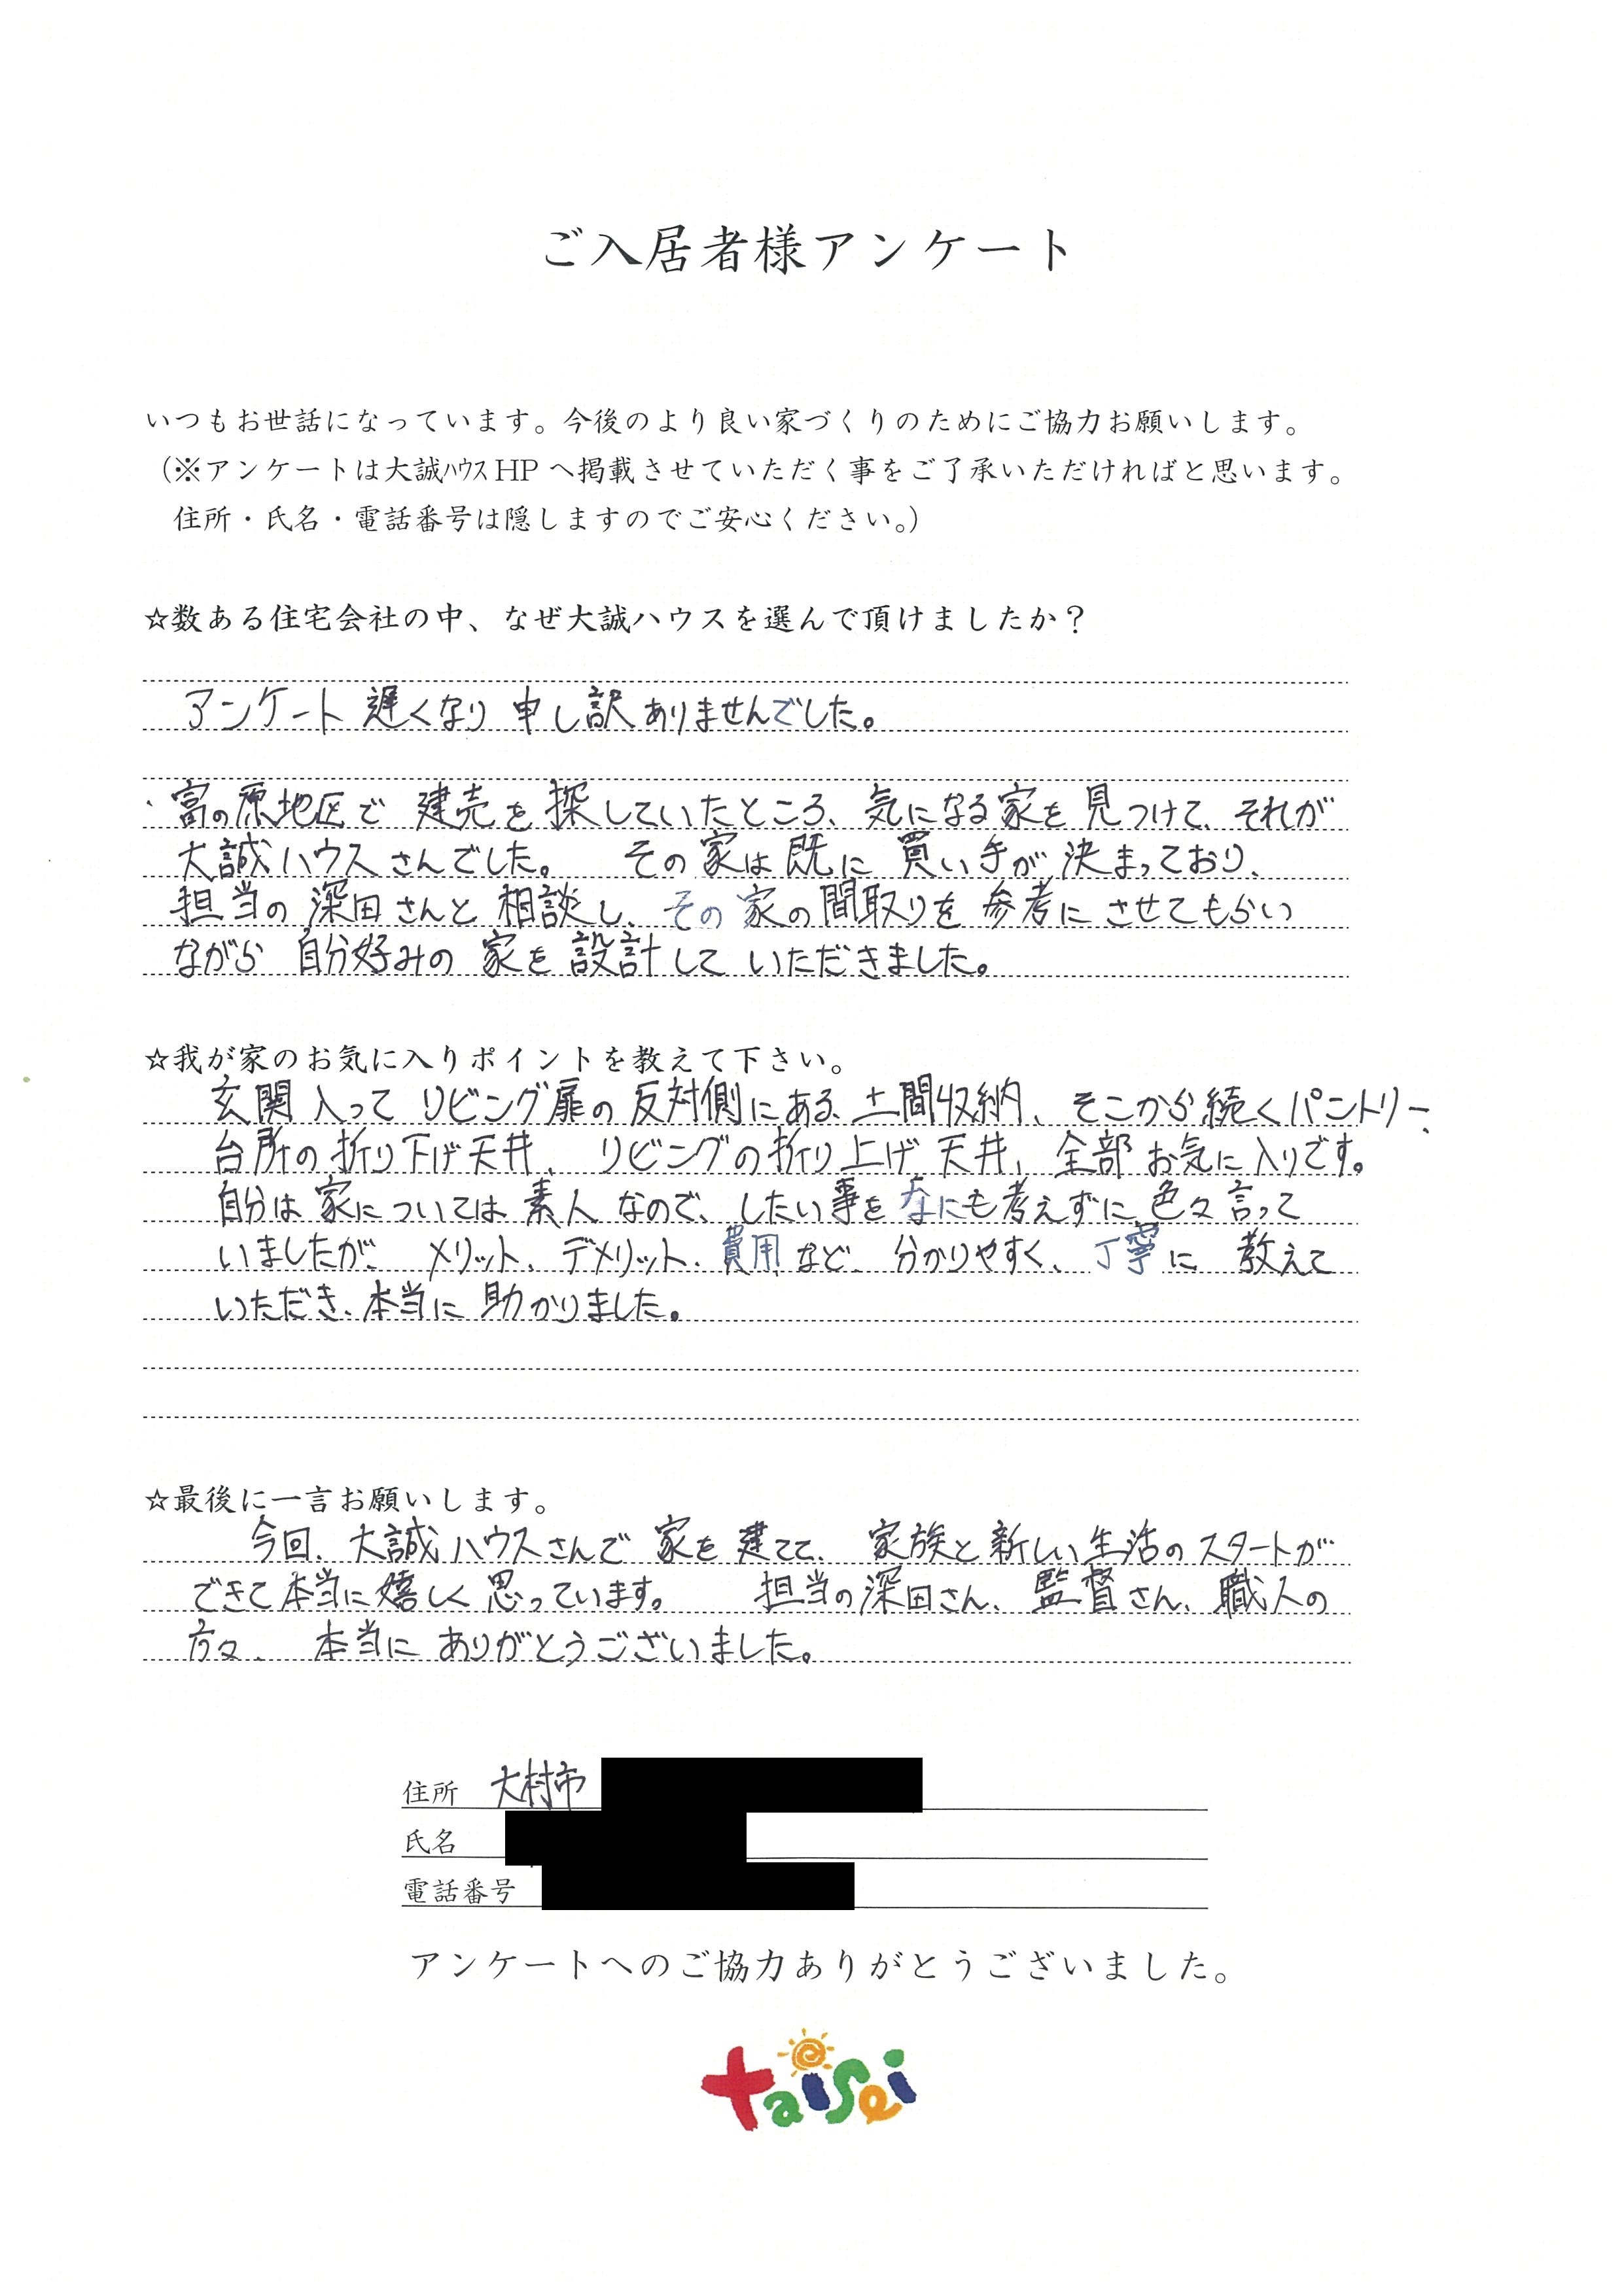 ご入居者様アンケート
いつもお世話になっています。今後のより良い家づくりのためにご協力お願いします。
(※アンケートは大誠ﾊｳｽHPへ掲載させていただく事をご了承いただければと思います。
住所・氏名・電話番号は隠しますのでご安心ください。)
☆数ある住宅会社の中、なぜ大誠ハウスを選んで頂けましたか？
アンケート遅くなり申し訳ありませんでした。
・富の原地区で建売を探していたところ、気になる家を見つけて、それが
大誠ハウスさんでした。 その家は既に買い手が決まっており、
担当の深田さんと相談し、その家の間取りを参考にさせてもらい
ながら自分好みの家を設計していただきました。
☆我が家のお気に入りポイントを教えて下さい。
玄関入ってリビング扉の反対側にある、土間収納、そこから続くパントリー、
台所の折り下げ天井、リビングの折り上げ天井、全部お気に入りです。
自分は家については素人なので、したい事をなにも考えずに色々言って
いましたが、メリット、デメリット、費用など、分かりやすく、丁寧に教えて
いただき、本当に助かりました。
☆最後に一言お願いします。
今回、大誠ハウスさんで家を建てて、家族と新しい生活のスタートが
できて本当に嬉しく思っています。 担当の深田さん、監督さん、職人の
方々、本当にありがとうございました。
住所 大村市
氏名
電話番号
アンケートへのご協力ありがとうございました。
taisei